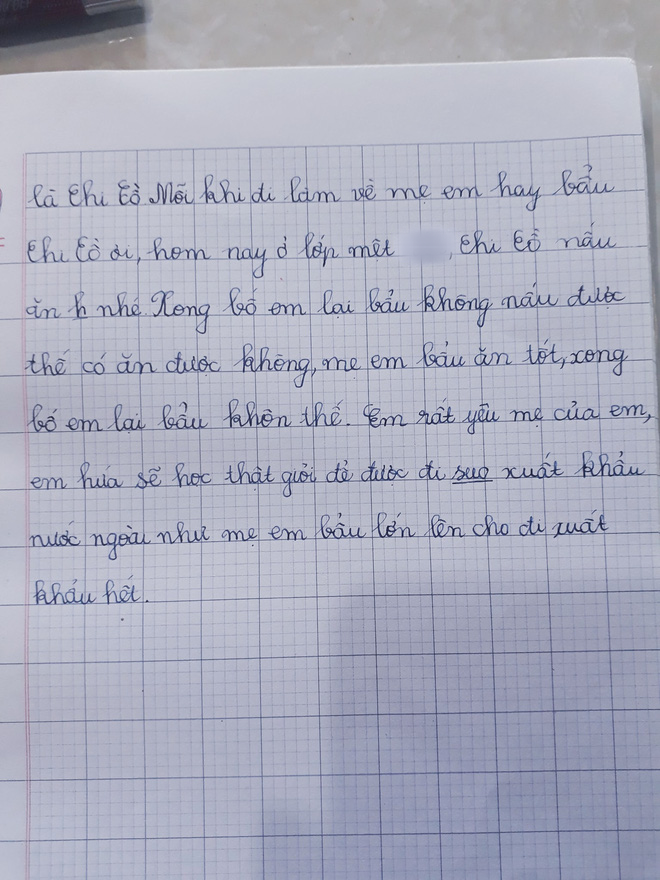 là thi tồ Mỗi khi đi làm về mẹ em hay bẩu
thi tồ ơi, hom nay ở lớp mệt , thi tồ nấu
ăn h nhé Xong bố em lại bẩu không nấu được
thế có ăn được không, mẹ em bẩu ăn tốt, xong
bố em lại bẩu khôn thế. Em rất yêu mẹ của em,
em hứa sẽ học thật giỏi để được đi suo xuất khẩu
nước ngoài như mẹ em bẩu lớn lên cho đi xuất
khẩu hết.